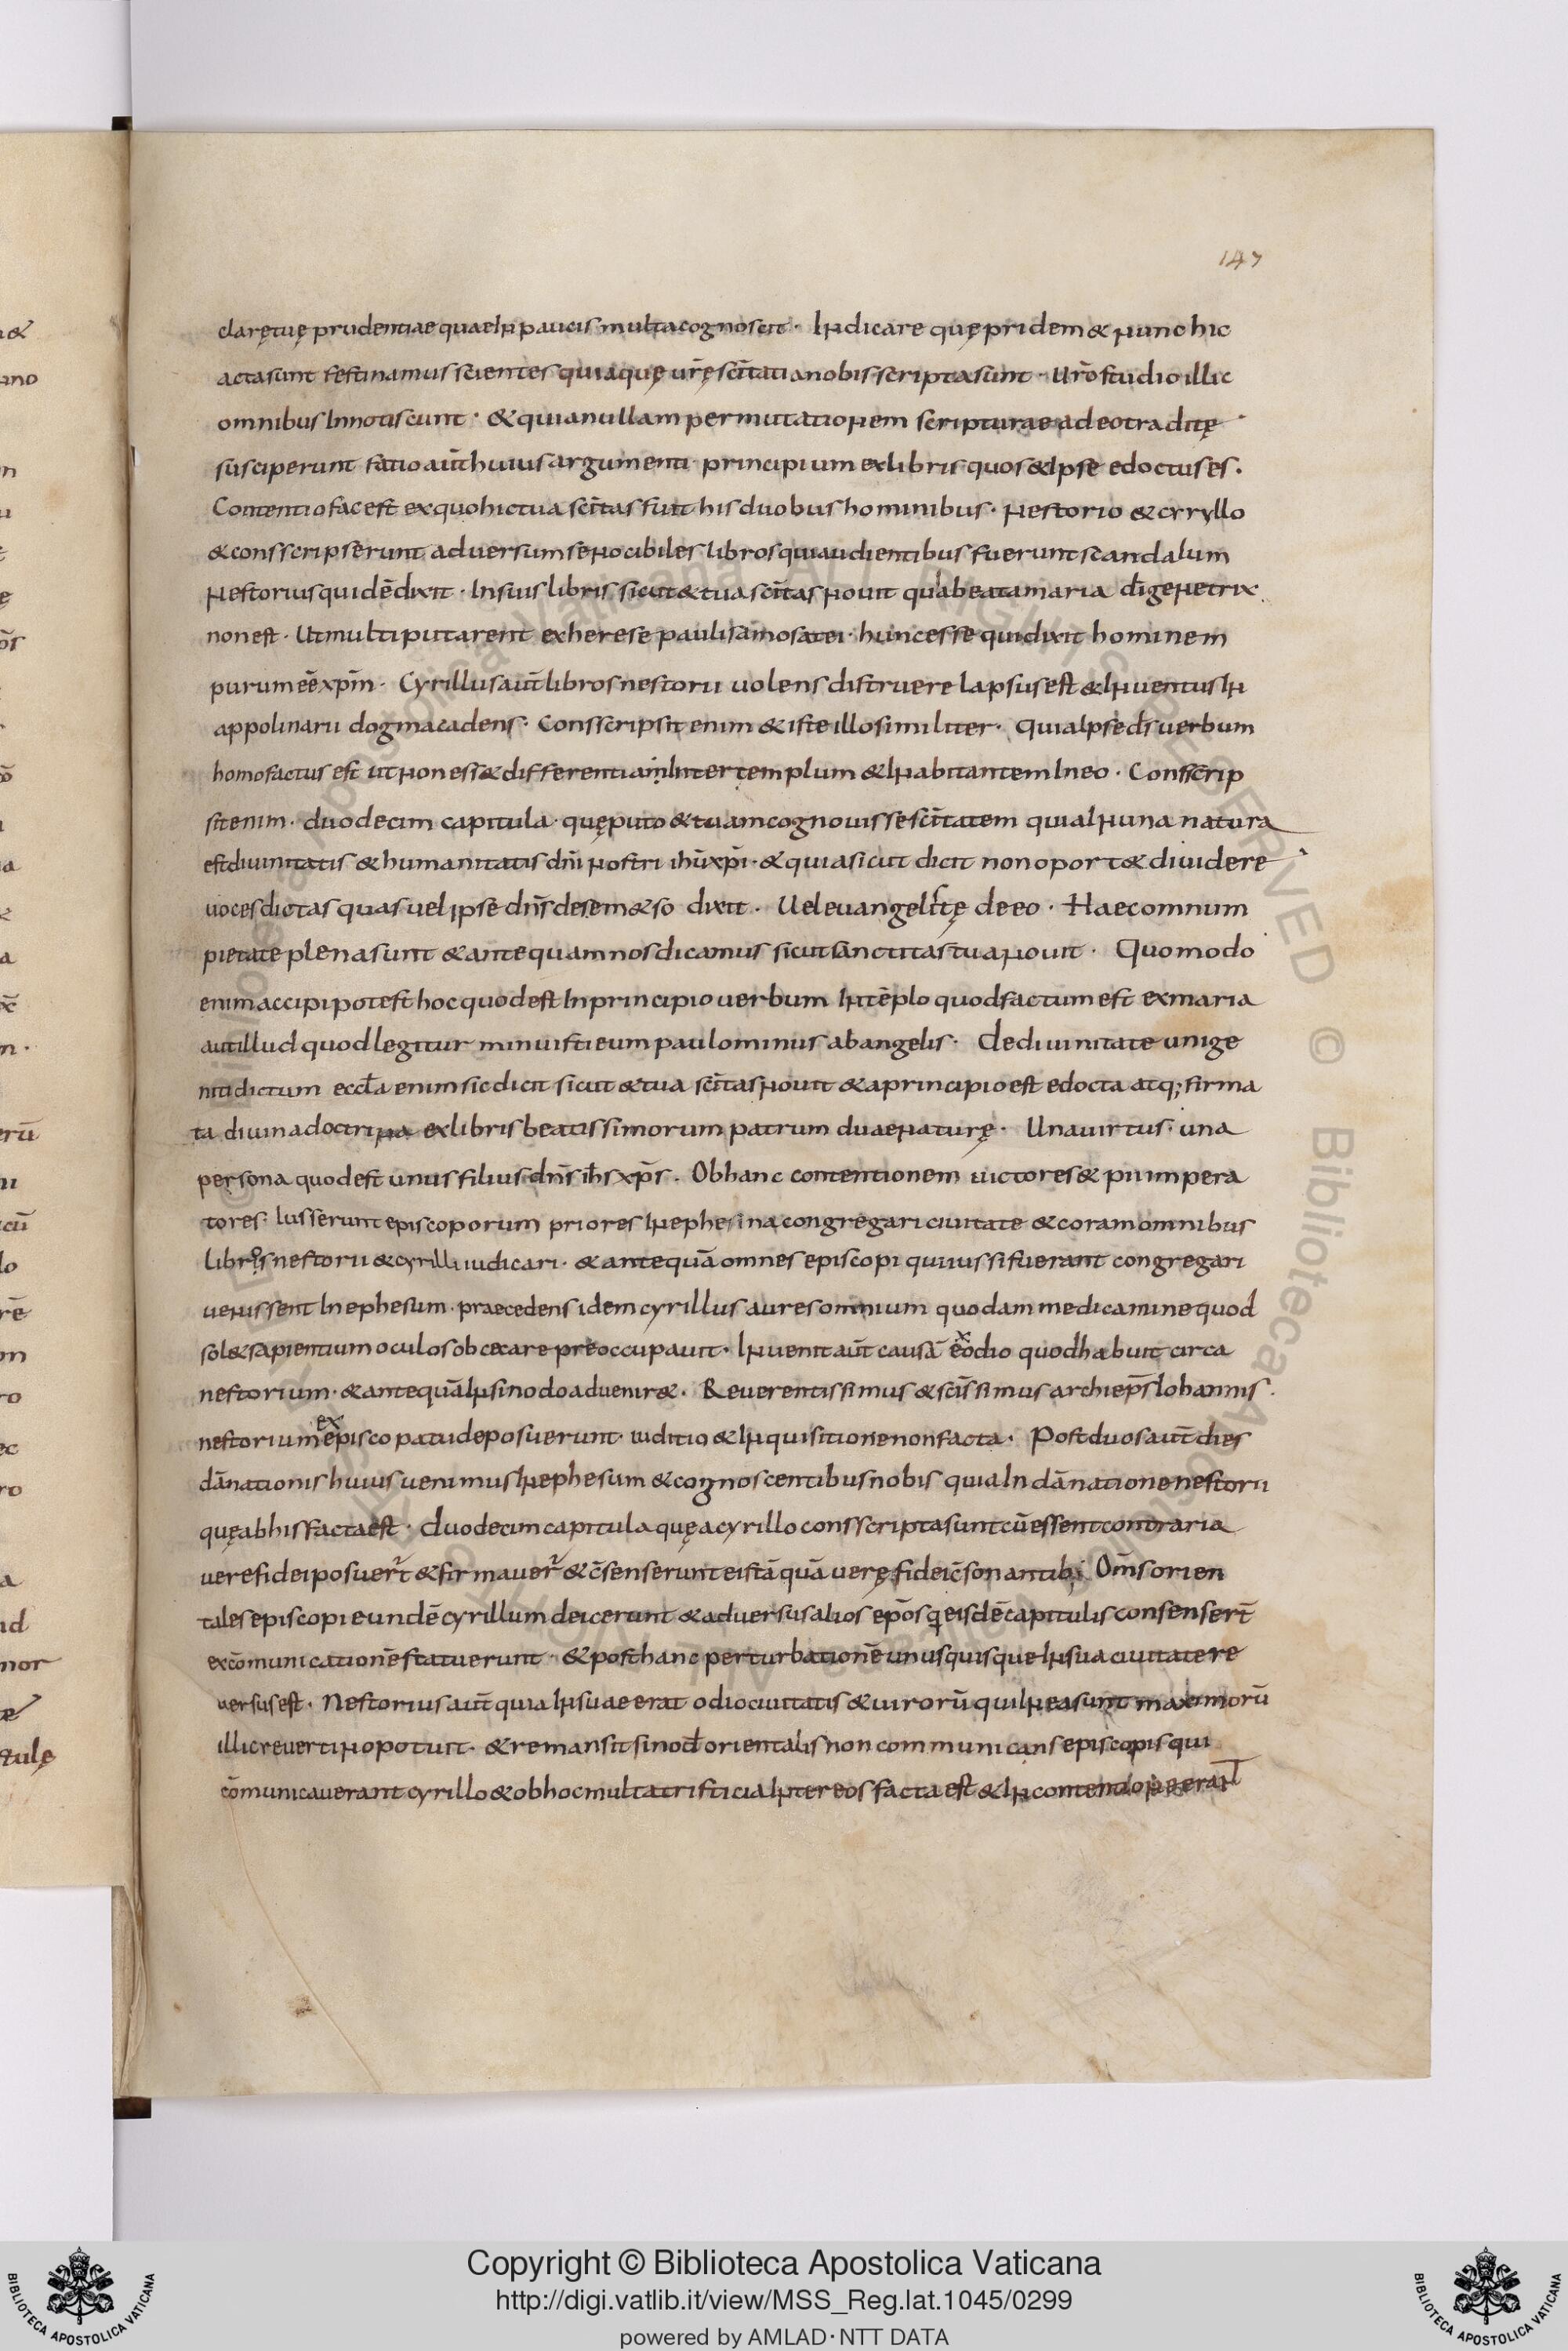 147
clarętuę prudentiae quae in paucis multa cognoscit · Indicare quę pridem & nunc hic
acta sunt festinamus scientes quia quę ur̄ę sc̄itati a nobis scripta sunt · Ur̄o studio illic
omnibus Innotiscunt · & quia nullam permutationem scripturae ad eo traditę
susciperunt fatio aūt huius argumenti principium ex libris quos & Ipse edoctus es .
Contentio fac est ex quo hic tua sc̄itas fuit his duobus hominibus · Nestorio & cyryllo
& consscripserunt adversum se nocibiles libros qui audientibus fuerunt scandalum
Nestorius quidē dixit · In suis libris sicut & tua sc̄itas novit quia beata maria dī genetrix
non est · Ut multi putarent ex herese pauli samosatei · hunc esse qui dixit hominem
purum eē xp̄m · Cyrillus aūt libros nestorii uolens distruere lapsus est & Inventus In
appolinarii dogma cadens · Consscripsit enim & iste illo similiter · Quia Ipse d̄s verbum
homo factus est ut non ess& differentiam Inter templum & Inhabitantem In eo · Consscrip
sit enim · duodecim capitula · quę puto & tuam cognouisse sc̄itatem quia In una natura
est divinitatis & humanitatis dn̄i nostri ih̄u xp̄i · & quia sicut dicit non oport& dividere
uoces dictas quas uel Ipse dn̄s de sem&so dixit · Uel evangelistę de eo · Haec omnum
pietate plena sunt & antequam nos dicamus sicut sanctitas tua novit · Quomodo
enim accipi potest hoc quod est In principio uerbum In tēplo quod factum est ex maria
aut illud quod legitur minuisti eum paulominus ab angelis · De divinitate unige
niti dictum eccl̄a enim sic dicit sicut & tua sc̄itas novit & a principio est edocta atq; firma
ta divina doctrina ex libris beatissimorum patrum duae naturę · Una virtus · una
persona quod est unus filius dn̄s ih̄s xp̄s . Ob hanc contentionem victores & pii impera
tores · Iusserunt episcoporum priores In ephesina congregari civitate & coram omnibus
libros nestorii & cyrilli iudicari · & antequā omnes episcopi qui iussi fuerant congregari
uenissent In ephesum · praecedens idem cyrillus aures omnium quodam medicamine quod
sol& sapientium oculos obcecare preoccupavit · Invenit aūt causā ex odio quod habuit circa
nestorium · & antequā In sinodo advenir& · Reverentissimus & sc̄issimus archiep̄s Iohannis ·
nestorium ex episcopatu deposuerunt · iuditio & Inquisitione non facta · Post duos aūt dies
dānationis huius venimus In ephesum & cognoscentibus nobis quia In dānatione nestorii
quę ab his facta est · duodecim capitula quę a cyrillo consscripta sunt cū essent contraria
vere fidei posuer̄t & firmaver̄t & c̄senserunt eis tāquā verę fidei c̄sonantib; Om̄s orien
tales episcopi eundē cyrillum deicerunt & adversus alios ep̄os q eisdē capitulis consenser̄t
excōmunicationē statuerunt · & post hanc perturbationē unusquisque In sua civitate re
versus est · Nestorius aūt quia In suae erat odio civitatis & virorū qui In ea sunt maximorū
illic reverti no potuit · & remansit sinod̄ orientalis non communicans episcopis qui
cōmunicaverant cyrillo & ob hoc multa tristicia Inter eos facta est & In contentione erant
Copyright © Biblioteca Apostolica Vaticana
http://digi.vatlib.it/view/MSS_Reg.lat.1045/0299
powered by AMLAD·NTT DATA